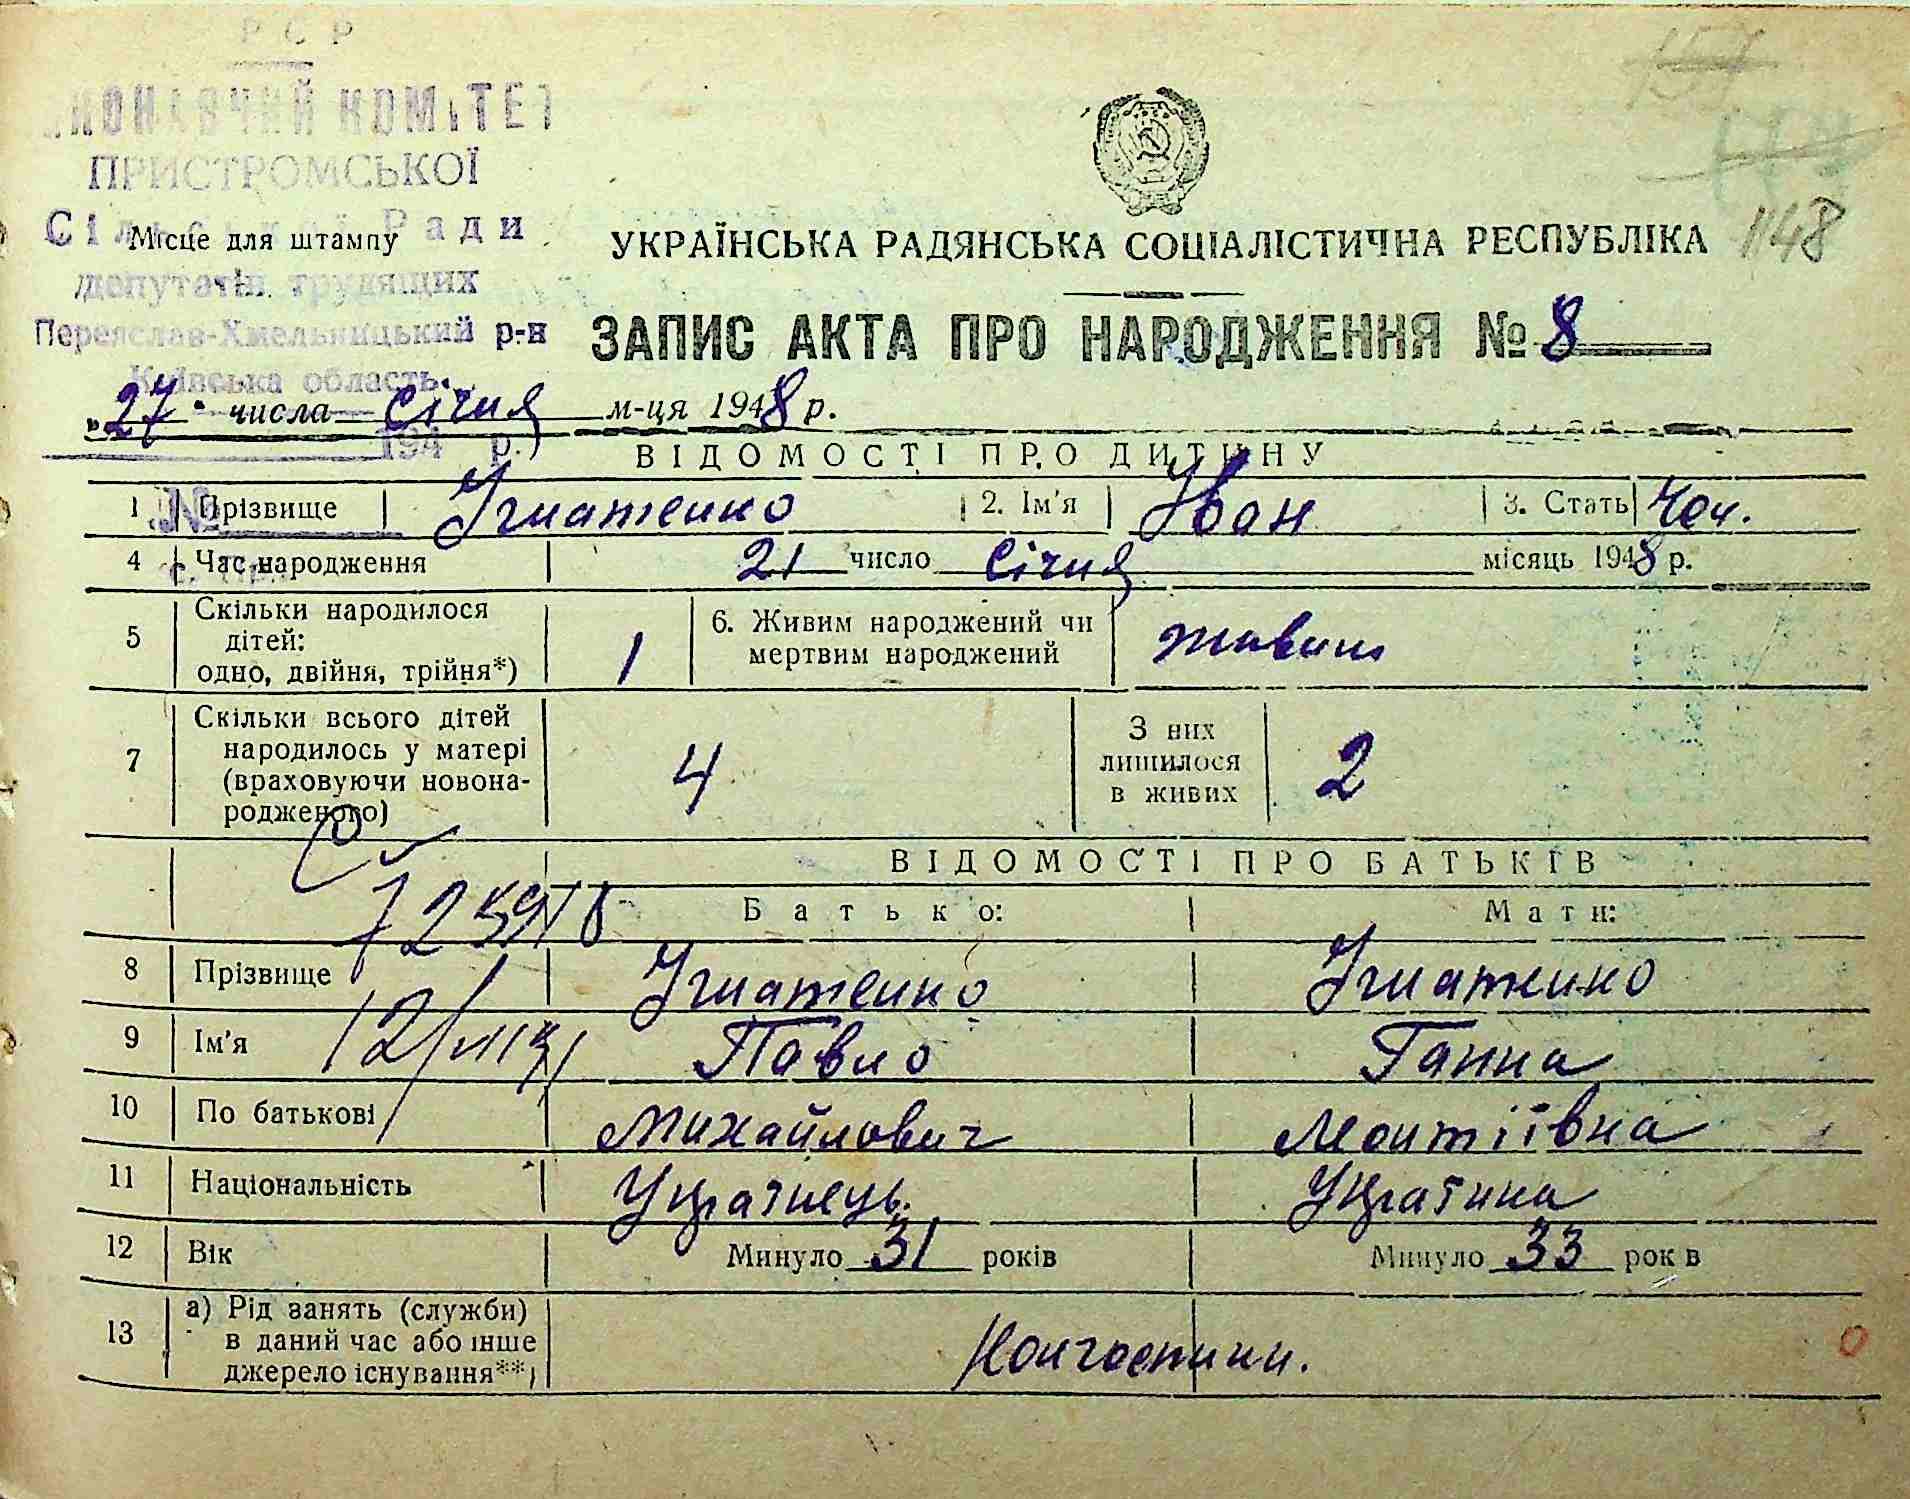 РСР
ВИКОНАВЧИЙ КОМІТЕТ
ПРИСТРОМСЬКОЇ
Сільської Ради
Місце для штампу
депутатів трудящих
Переяслав-Хмельницький р-н
Київська область
194 р.
№
1148
УКРАЇНСЬКА РАДЯНСЬКА СОЦІАЛІСТИЧНА РЕСПУБЛІКА
ЗАПИС АКТА ПРО НАРОДЖЕННЯ № 8
„27" числа січня м-ця 1948 р.
ВІДОМОСТІ ПРО ДИТИНУ
1 Прізвище Ігнатенко 2. Ім'я Іван 3. Стать Чол.
4 Час народження 21 число січня місяць 1948 р.
5 Скільки народилося дітей: одно, двійня, трійня*) 1 6. Живим народжений чи мертвим народжений живим
7 Скільки всього дітей народилось у матері (враховуючи новонародженого) 4 З них лишилося в живих 2
ВІДОМОСТІ ПРО БАТЬКІВ
Батько: Мати:
8 Прізвище Ігнатенко Ігнатенко
9 Ім'я Павло Ганна
10 По батькові Михайлович
11 Національність Українець Українка
12 Вік Минуло 31 років Минуло 33 років
13 а) Рід занять (служби) в даний час або інше джерело існування**) Колгоспники.